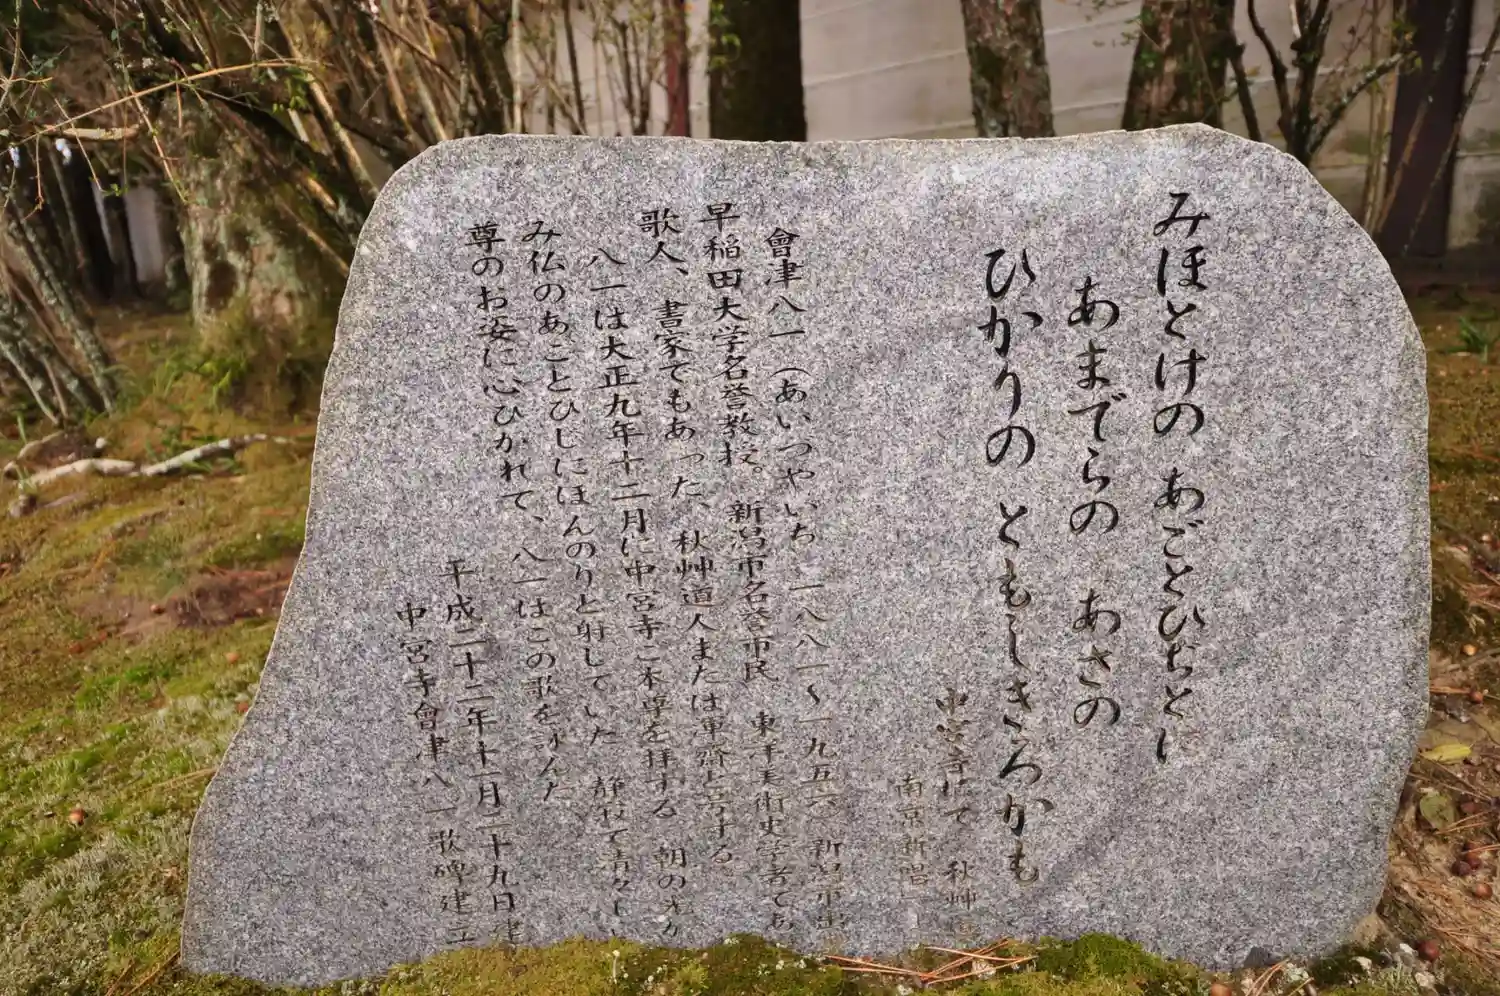 みほとけの あごとひぢとに
あまでらの あさの
ひかりの ともしきろかも
中宮寺にて 秋艸
南京新唱
會津八一(あいづやいち 一八八一〜一九五六)新潟市出
早稲田大学名誉教授。新潟市名誉市民 東洋美術史学者であ
歌人、書家でもあった、秋艸道人または渾齋と号する。
八一は大正九年十二月に中宮寺ご本尊を拝する 朝の光が
み仏のあごとひじにほんのりと射していた 静寂で清々し
尊のお姿に心ひかれて、八一はこの歌を詠んだ
平成二十二年十一月二十九日建
中宮寺會津八一歌碑建立